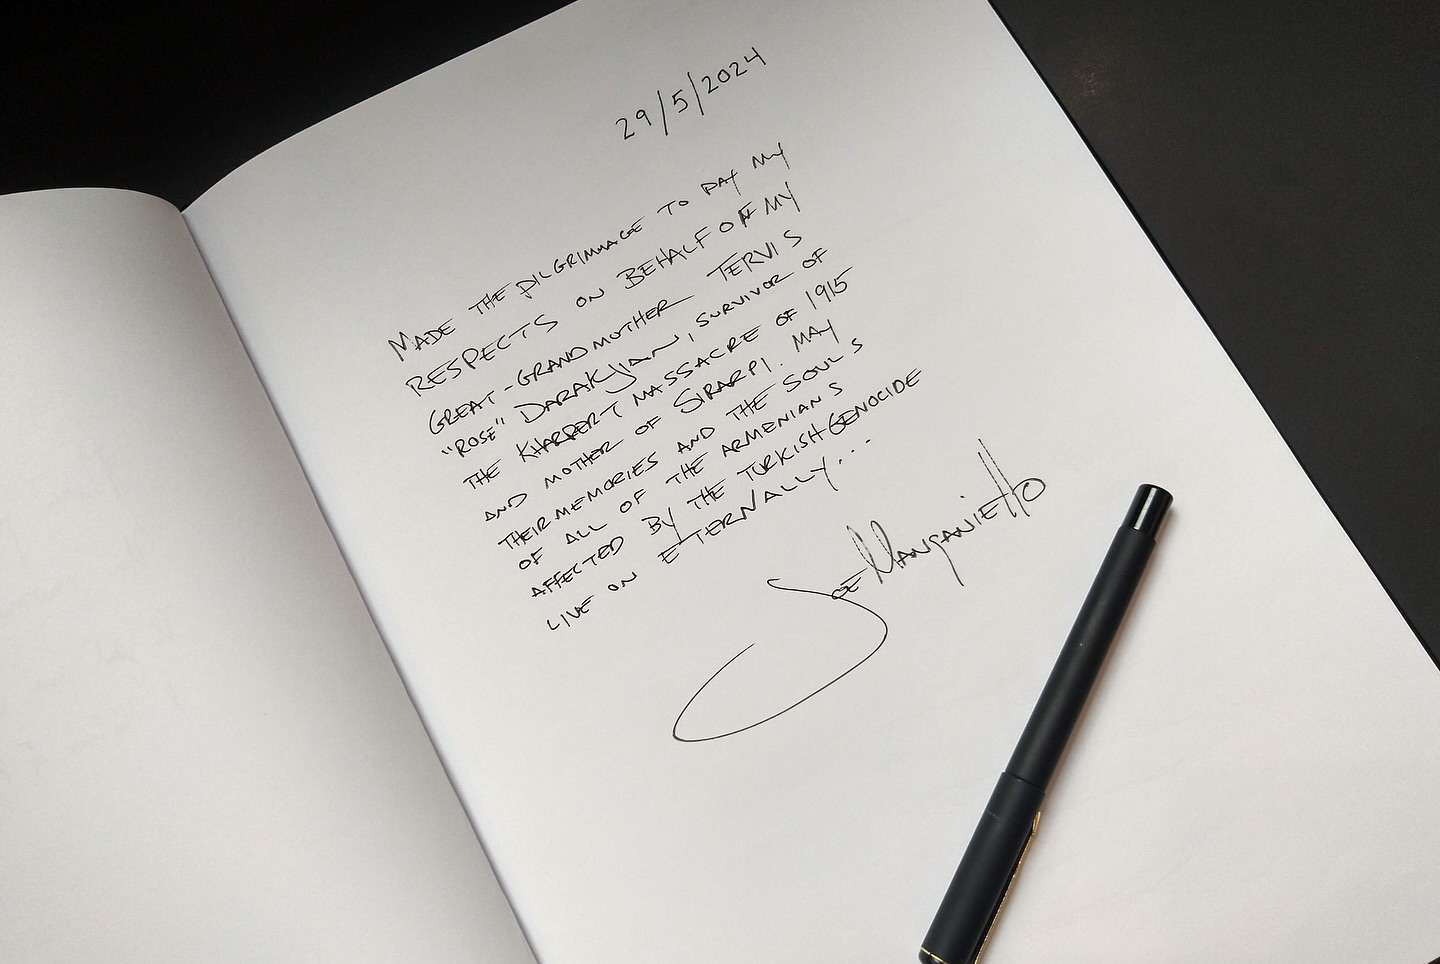 29/5/2024
MADE THE PILGRIMMAGE TO PAY MY
RESPECTS ON BEHALF OF MY
GREAT-GRANDMOTHER TERVIS
"ROSE" DARAKJIAN, SURVIVOR OF
THE KHARPERT MASSACRE OF 1915
AND MOTHER OF SIRARPI. MAY
THEIR MEMORIES AND THE SOULS
OF ALL OF THE ARMENIANS
AFFECTED BY THE TURKISH GENOCIDE
LIVE ON ETERNALLY...
JOE MANGANIELLO